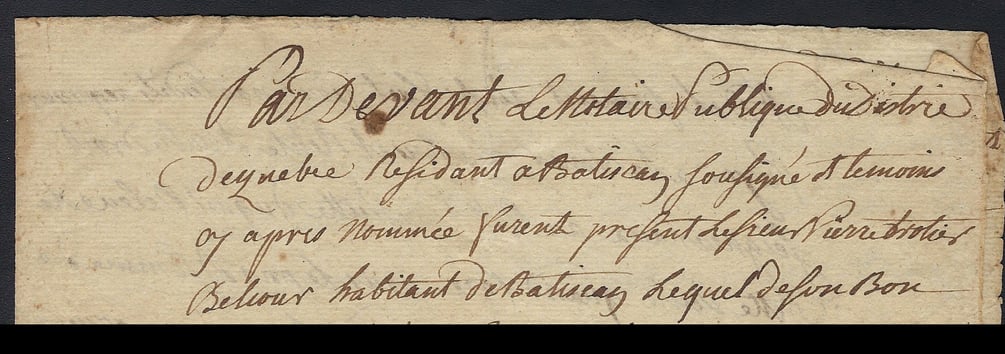 Par Devant Le Notaire Publique Du Distric
De quebec Residant a Batiscan sousigné et temoins
cy apres Nommée furent present Le sieur Pierre trotier
Belcour habitant de Batiscan Lequel de son Bon